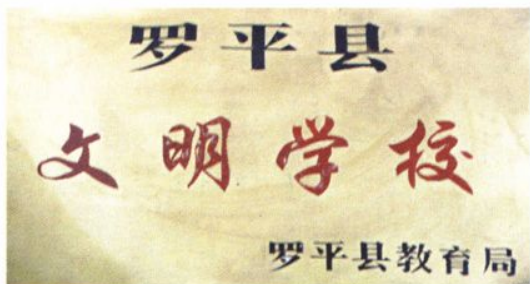 罗平县
文明学校
罗平县教育局